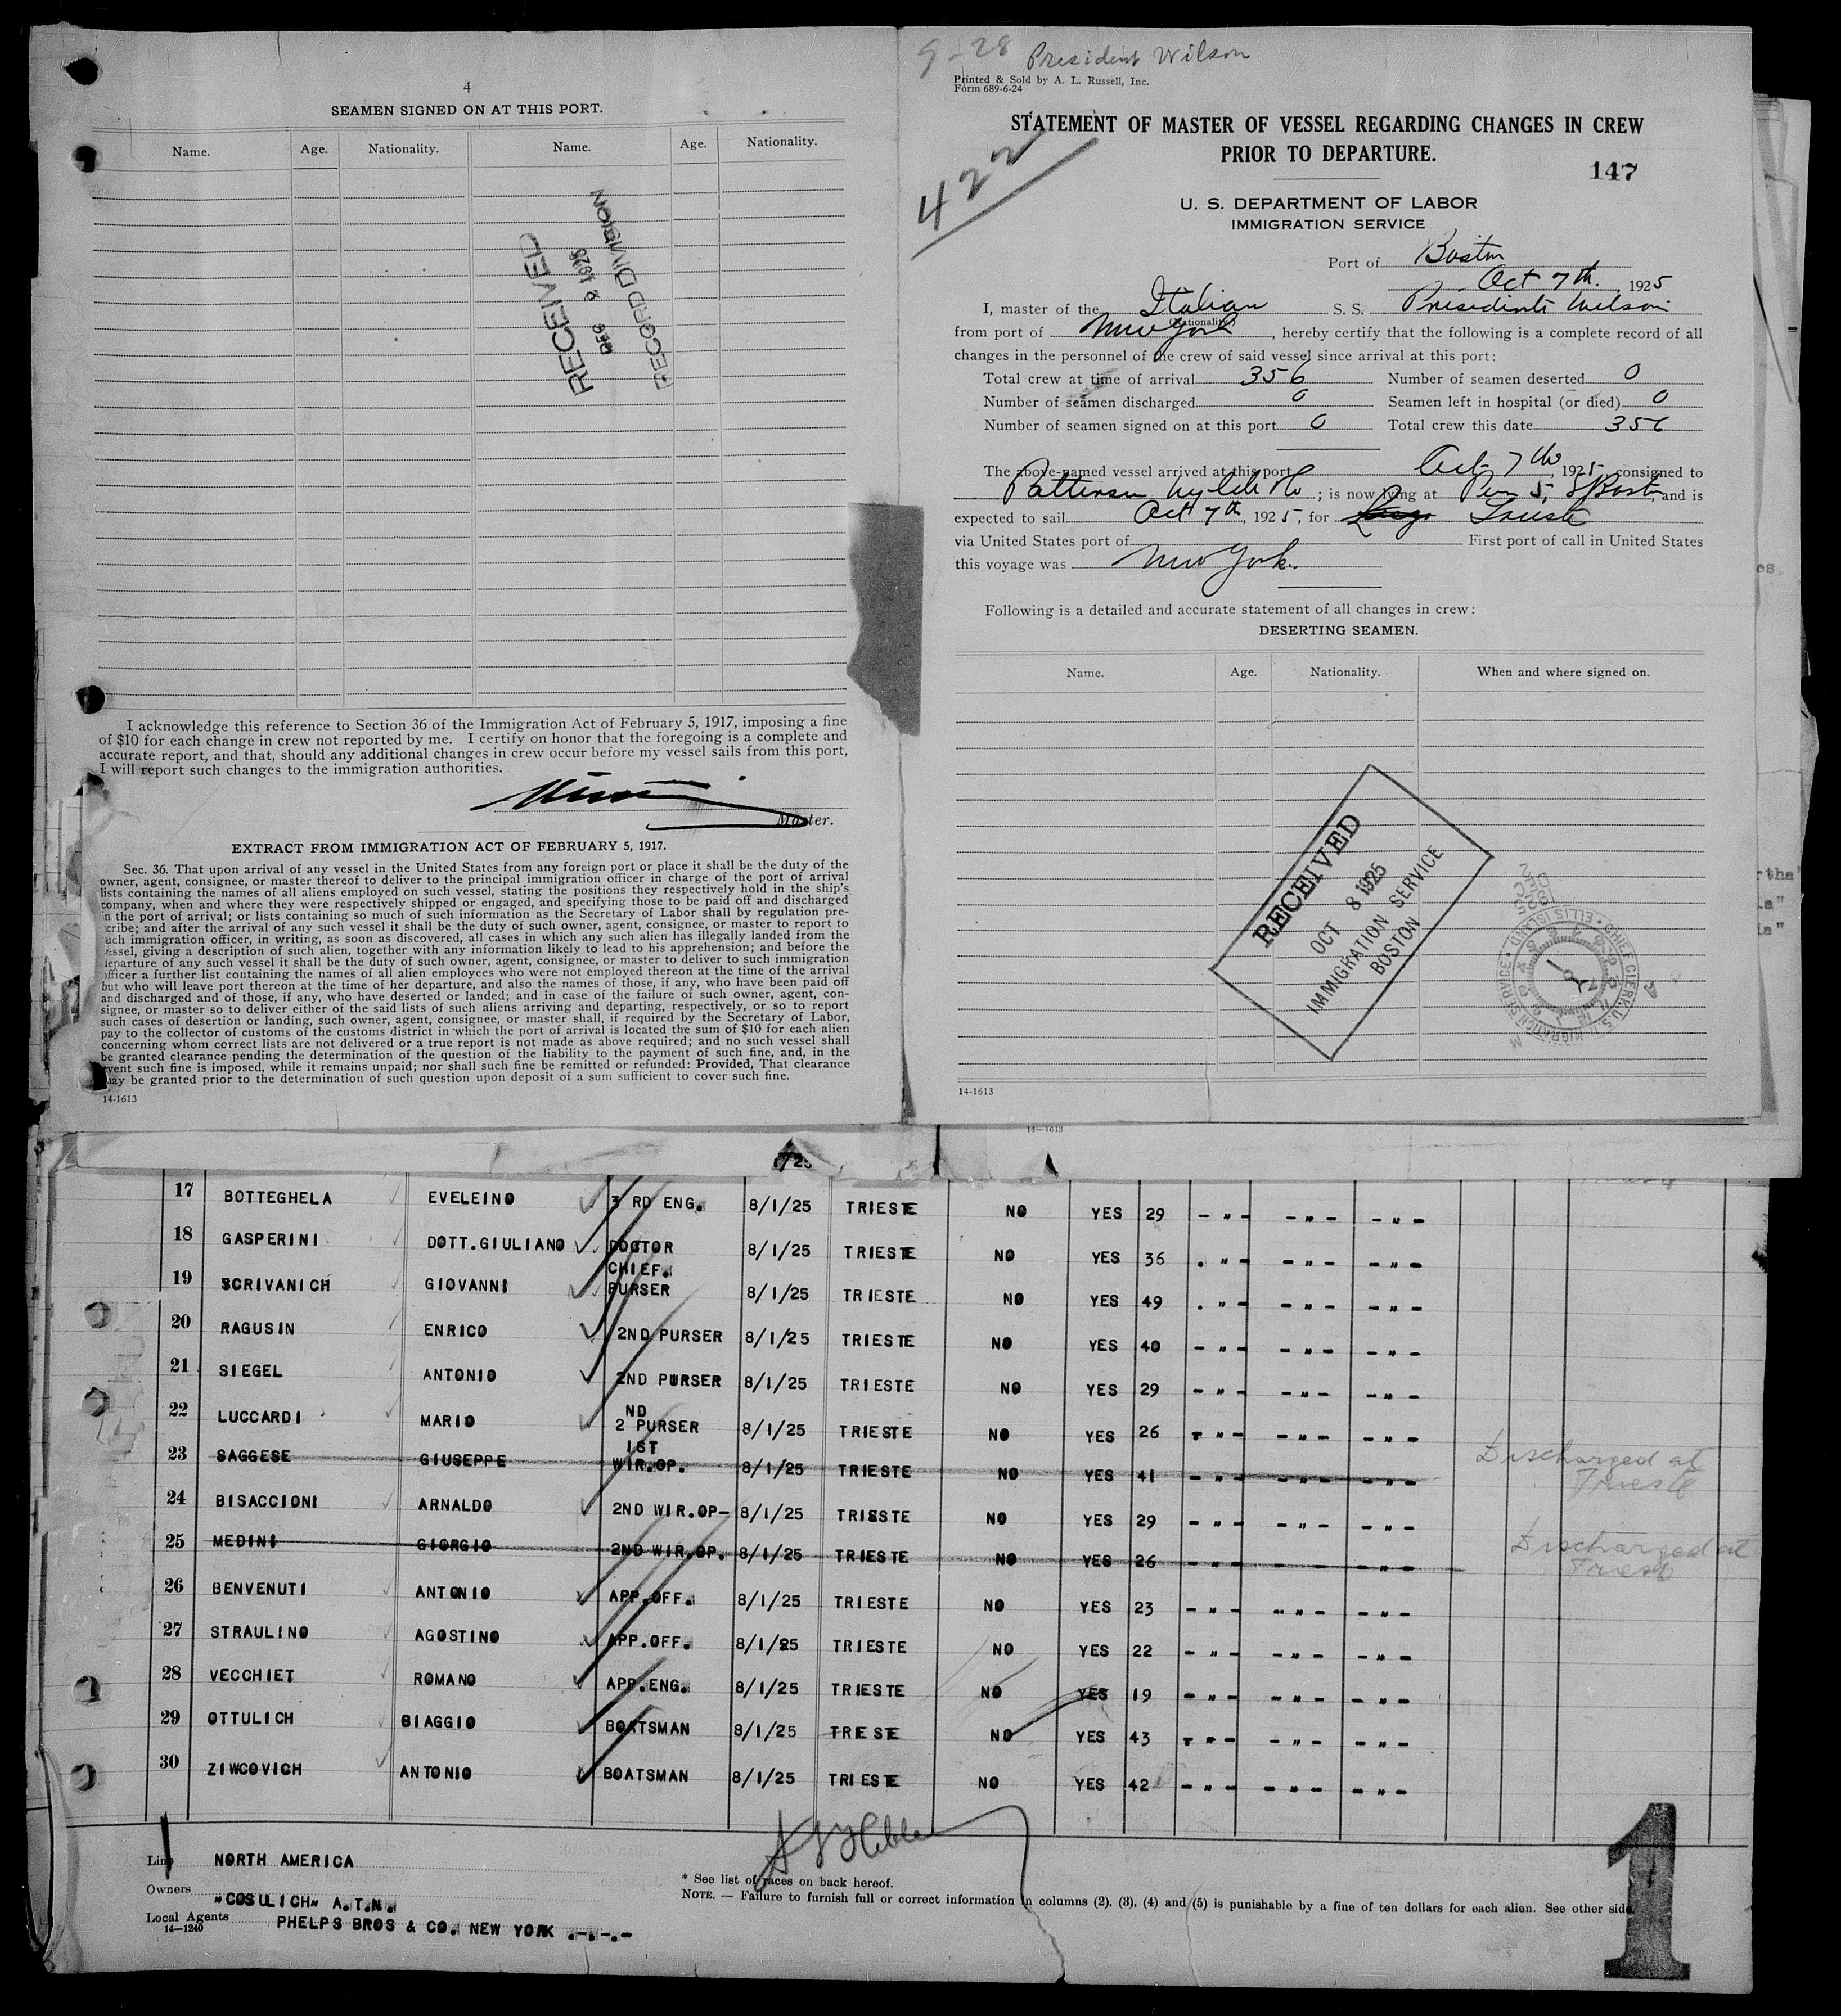 4
SEAMEN SIGNED ON AT THIS PORT.
Name. Age. Nationality. Name. Age. Nationality.
RECEIVED
DEC 2 1925
RECORD DIVISION
I acknowledge this reference to Section 36 of the Immigration Act of February 5, 1917, imposing a fine
of $10 for each change in crew not reported by me. I certify on honor that the foregoing is a complete and
accurate report, and that, should any additional changes in crew occur before my vessel sails from this port,
I will report such changes to the immigration authorities.
Master.
EXTRACT FROM IMMIGRATION ACT OF FEBRUARY 5, 1917.
Sec. 36. That upon arrival of any vessel in the United States from any foreign port or place it shall be the duty of the
owner, agent, consignee, or master thereof to deliver to the principal immigration officer in charge of the port of arrival
lists containing the names of all aliens employed on such vessel, stating the positions they respectively hold in the ship's
company, when and where they were respectively shipped or engaged, and specifying those to be paid off and discharged
in the port of arrival; or lists containing so much of such information as the Secretary of Labor shall by regulation pre-
cribe; and after the arrival of any such vessel it shall be the duty of such owner, agent, consignee, or master to report to
uch immigration officer, in writing, as soon as discovered, all cases in which any such alien has illegally landed from the
essel, giving a description of such alien, together with any information likely to lead to his apprehension; and before the
departure of any such vessel it shall be the duty of such owner, agent, consignee, or master to deliver to such immigration
officer a further list containing the names of all alien employees who were not employed thereon at the time of the arrival
but who will leave port thereon at the time of her departure, and also the names of those, if any, who have been paid off
and discharged and of those, if any, who have deserted or landed; and in case of the failure of such owner, agent, con-
signee, or master so to deliver either of the said lists of such aliens arriving and departing, respectively, or so to report
such cases of desertion or landing, such owner, agent, consignee, or master shall, if required by the Secretary of Labor,
pay to the collector of customs of the customs district in which the port of arrival is located the sum of $10 for each alien
concerning whom correct lists are not delivered or a true report is not made as above required; and no such vessel shall
be granted clearance pending the determination of the question of the liability to the payment of such fine, and, in the
event such fine is imposed, while it remains unpaid; nor shall such fine be remitted or refunded: Provided, That clearance
may be granted prior to the determination of such question upon deposit of a sum sufficient to cover such fine.
14-1613
9-28 President Wilson
Printed & Sold by A. L. Russell, Inc.
Form 689-6-24
STATEMENT OF MASTER OF VESSEL REGARDING CHANGES IN CREW
PRIOR TO DEPARTURE.
147
422
U. S. DEPARTMENT OF LABOR
IMMIGRATION SERVICE
Port of Boston
Oct 7th, 1925
I, master of the Italian S. S. Presidente Wilson
(Nationality)
from port of New York, hereby certify that the following is a complete record of all
changes in the personnel of the crew of said vessel since arrival at this port:
Total crew at time of arrival 356 Number of seamen deserted 0
Number of seamen discharged 0 Seamen left in hospital (or died) 0
Number of seamen signed on at this port 0 Total crew this date 356
The above-named vessel arrived at this port Oct 7th, 1925, consigned to
Patterson Wylde & Co; is now lying at Pier 5, S Boston, and is
expected to sail Oct 7th, 1925, for Trieste
via United States port of First port of call in United States
this voyage was New York.
Following is a detailed and accurate statement of all changes in crew:
DESERTING SEAMEN.
Name. Age. Nationality. When and where signed on.
RECEIVED
OCT 8 1925
IMMIGRATION SERVICE
BOSTON
CHIEF CLERK, U.S. IMMIGRATION SERVICE • ELLIS ISLAND •
14-1613
14-1613
17 BOTTEGHELA EVELEINO 3 RD ENG. 8/1/25 TRIESTE NO YES 29 - " - - " - - " -
18 GASPERINI DOTT.GIULIANO DOCTOR 8/1/25 TRIESTE NO YES 36 . " - - " - - " -
19 SCRIVANICH GIOVANNI CHIEF. PURSER 8/1/25 TRIESTE NO YES 49 . " - - " - - " -
20 RAGUSIN ENRICO 2ND PURSER 8/1/25 TRIESTE NO YES 40 - " - - " - - " -
21 SIEGEL ANTONIO 2ND PURSER 8/1/25 TRIESTE NO YES 29 - " - - " - - " -
22 LUCCARDI MARIO 2 ND PURSER 8/1/25 TRIESTE NO YES 26 - " - - " - - " -
23 SAGGESE GIUSEPPE IST WIR.OP. 8/1/25 TRIESTE NO YES 41 - " - - " - - " - Discharged at Trieste
24 BISACCIONI ARNALDO 2ND WIR.OP- 8/1/25 TRISSTE NO YES 29 - " - - " - - " -
25 MEDINI GIORGIO 2ND WIR.OP. 8/1/25 TRIESTE NO YES 26 - " - - " - - " - Discharged at Trieste
26 BENVENUTI ANTONIO APP.OFF. 8/1/25 TRIESTE NO YES 23 - " - - " - - " -
27 STRAULINO AGOSTINO APP.OFF. 8/1/25 TRIESTE NO YES 22 - " - - " - - " -
28 VECCHIET ROMANO APP.ENG. 8/1/25 TRIESTE NO YES 19 - " - - " - - " -
29 OTTULICH BIAGGIO BOATSMAN 8/1/25 TRIESTE NO YES 43 - " - - " - - " -
30 ZIWCOVICH ANTONIO BOATSMAN 8/1/25 TRIESTE NO YES 42 - " - - " - - " -
Line NORTH AMERICA
Owners "COSULICH" A.T.N.
Local Agents PHELPS BROS & CO. NEW YORK .-.-.-
14-1240
* See list of races on back hereof.
NOTE. — Failure to furnish full or correct information in columns (2), (3), (4) and (5) is punishable by a fine of ten dollars for each alien. See other side
1